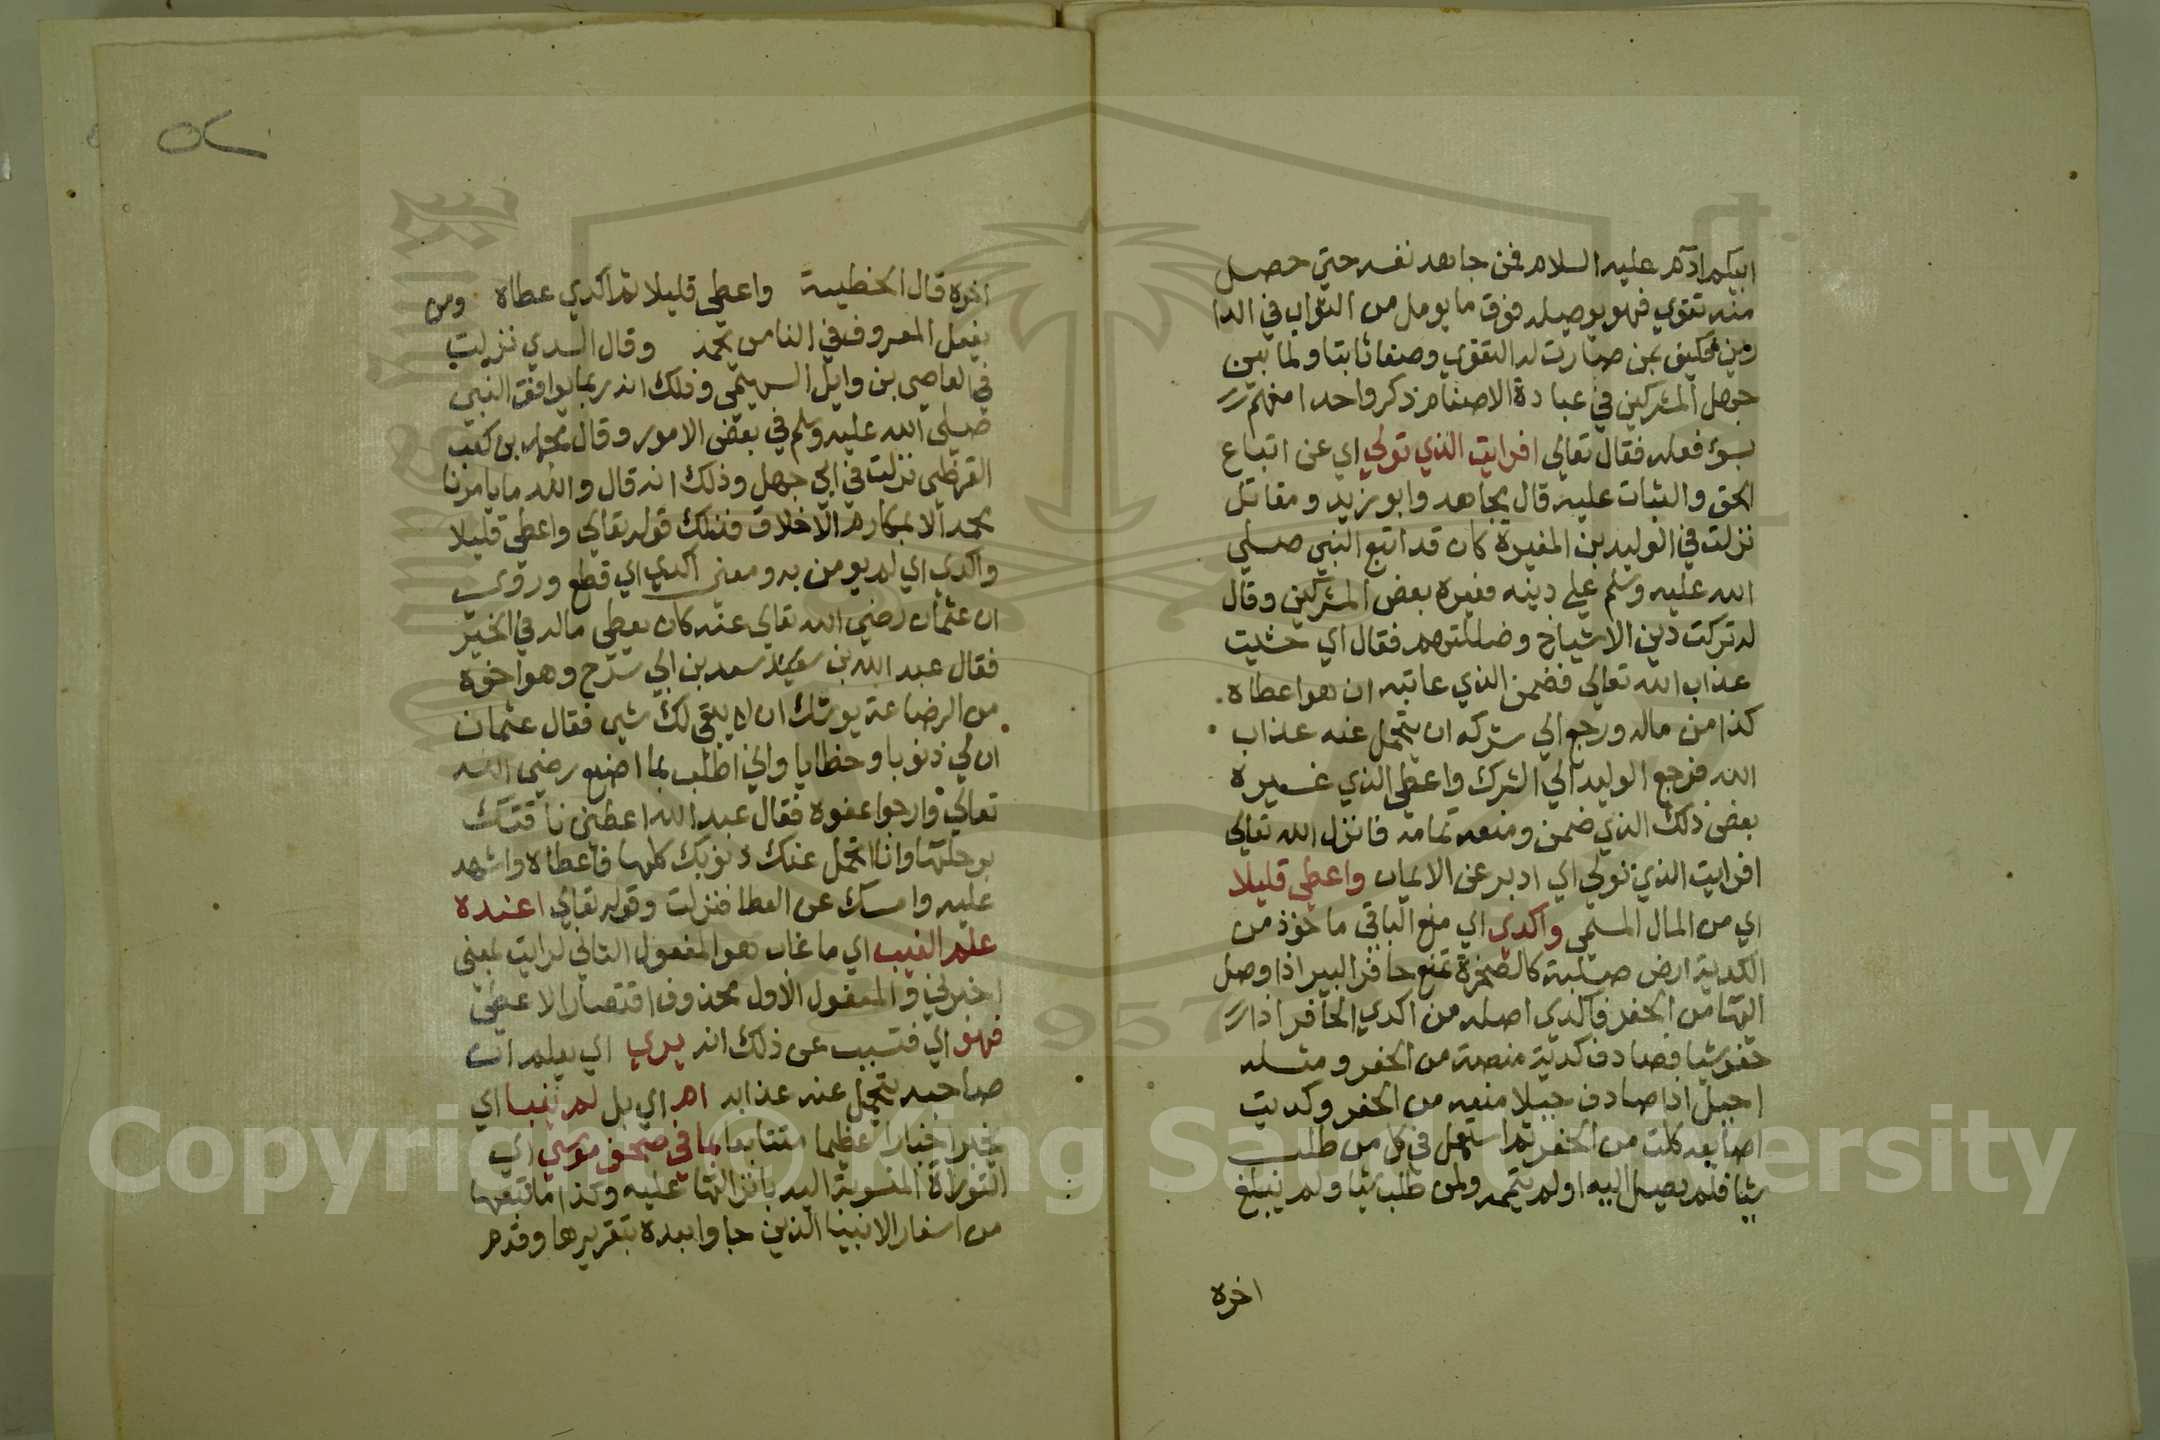 ابيكم ادم عليه السلام فمن جاهد نفسه حتي حصل
منه تقوي فهو يوصله فوق ما يومل من الثواب في الدا
رين فكيف بمن صارت له التقوي وصفا ثابتا ولما بين
جهل المشركين في عبادة الاصنام ذكر واحدا منهم
بسوء فعله فقال تعالي افرايت الذي تولي اي عن اتباع
الحق والثبات عليه قال مجاهد وابو زيد ومقاتل
نزلت في الوليد بن المغيرة كان قد اتبع النبي صلي
الله عليه وسلم علي دينه فغيره بعض المشركين وقال
له تركت دين الاشياخ وضللتهم فقال اي خشيت
عذاب الله تعالي فضمن الذي عاتبه ان هو اعطاه
كذا من ماله ورجع الي شركه ان يتحمل عنه عذاب
الله فرجع الوليد الي الشرك واعطي الذي غيره
بعض ذلك الذي ضمن ومنعه تمامه فانزل الله تعالي
افرايت الذي تولي اي ادبر عن الايمان واعطي قليلا
اي من المال المسمي واكدي اي منع الباقي ماخوذ من
الكدية ارض صلبة كالصخرة تمنع حافر البير اذا وصل
اليها من الحفر فاكدي اصله من اكدي الحافر اذا
حفر شيا فصادف كدية منعته من الحفر ومثله
اجبل اذا صادف جبلا منعه من الحفر وكديت
اصابعه كلت من الحفر ثم استعمل في كل من طلب
شيا فلم يصل اليه او لم يتمه ولمن طلب شيا ولم يبلغ
اخره
اخره قال الحطيية واعطي قليلا ثم اكدي عطاه ومن
يفعل المعروف في الناس يحمد وقال السدي نزلت
في العاصي بن وايل السهمي وذلك انه ربما يوافق النبي
صلي الله عليه وسلم في بعض الامور وقال محمد بن كعب
القرظي نزلت في ابي جهل وذلك انه قال والله ما يامرنا
محمد الا بمكارم الاخلاق فذلك قوله تعالي واعطي قليلا
واكدي اي لم يومن به ومعني اكدي اي قطع وروي
ان عثمان رضي الله تعالي عنه كان يعطي ماله في الخير
فقال عبد الله بن سعد بن ابي سرح وهو اخوه
من الرضاعة يوشك ان لا يبقي لك شي فقال عثمان
ان لي ذنوبا وخطايا واني اطلب بما اصنع رضي الله
تعالي وارجوا عفوه فقال عبد الله اعطني ناقتك
برحلها وانا اتحمل عنك ذنوبك كلها فاعطاه واشهد
عليه وامسك عن العطا فنزلت وقوله تعالي اعنده
علم الغيب اي ما غاب هو المفعول الثاني لرايت بمعني
اخبرني والمفعول الاول محذوف اقتصارا لاعطي
فهو اي فتسبب عن ذلك انه يري اي يعلم ان
صاحبه يتحمل عنه عذابه ام اي بل لم ينبا اي
يخبر اخبارا عظيما متتابعا بما في صحف موسي اي
التوراة المنسوبة اليه بانزالها عليه وكذا ما تبعها
من اسفار الانبيا الذين جاوا بعده بتقريرها وقدم